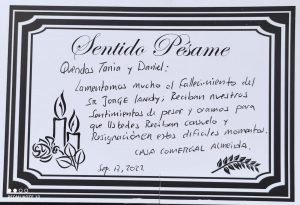 Sentido Pésame
Queridos Tania y Daniel:
Lamentamos mucho el Fallecimiento del
Sr. Jorge Landy; Reciban nuestros
Sentimientos de pesar y oramos para
que Ustedes Reciban consuelo y
Resignación en estos difíciles momentos.
CASA COMERCIAL ALMEIDA.
Sep. 17, 2022